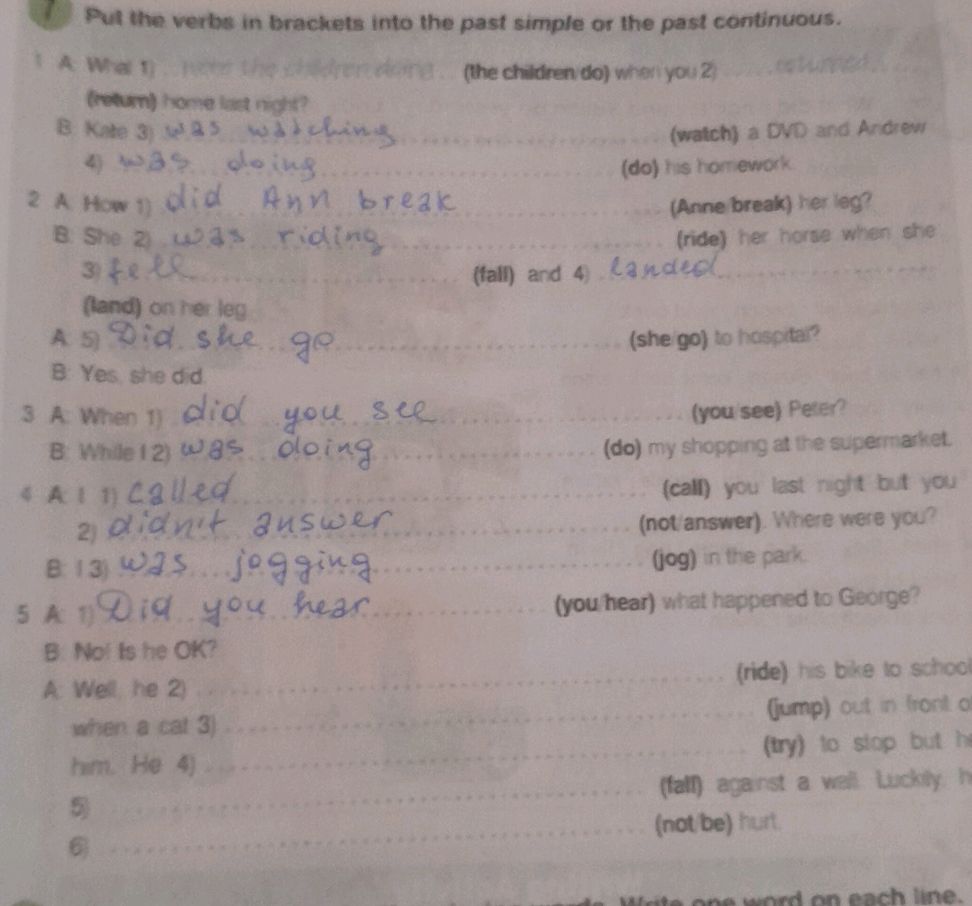 7 Put the verbs in brackets into the past simple or the past continuous.
1 A: What 1) were the children doing (the children/do) when you 2) returned
(return) home last night?
B: Kate 3) was watching (watch) a DVD and Andrew
4) was doing (do) his homework.
2 A: How 1) did Ann break (Anne/break) her leg?
B: She 2) was riding (ride) her horse when she
3) fell (fall) and 4) landed
(land) on her leg.
A: 5) Did she go (she/go) to hospital?
B: Yes, she did.
3 A: When 1) did you see (you/see) Peter?
B: While I 2) was doing (do) my shopping at the supermarket.
4 A: I 1) called (call) you last night but you
2) didn't answer (not/answer). Where were you?
B: I 3) was jogging (jog) in the park.
5 A: 1) Did you hear (you/hear) what happened to George?
B: No! Is he OK?
A: Well, he 2) (ride) his bike to school
when a cat 3) (jump) out in front
him. He 4) (try) to stop but
5) (fall) against a wall. Luckily,
6) (not/be) hurt.
Write one word on each line.